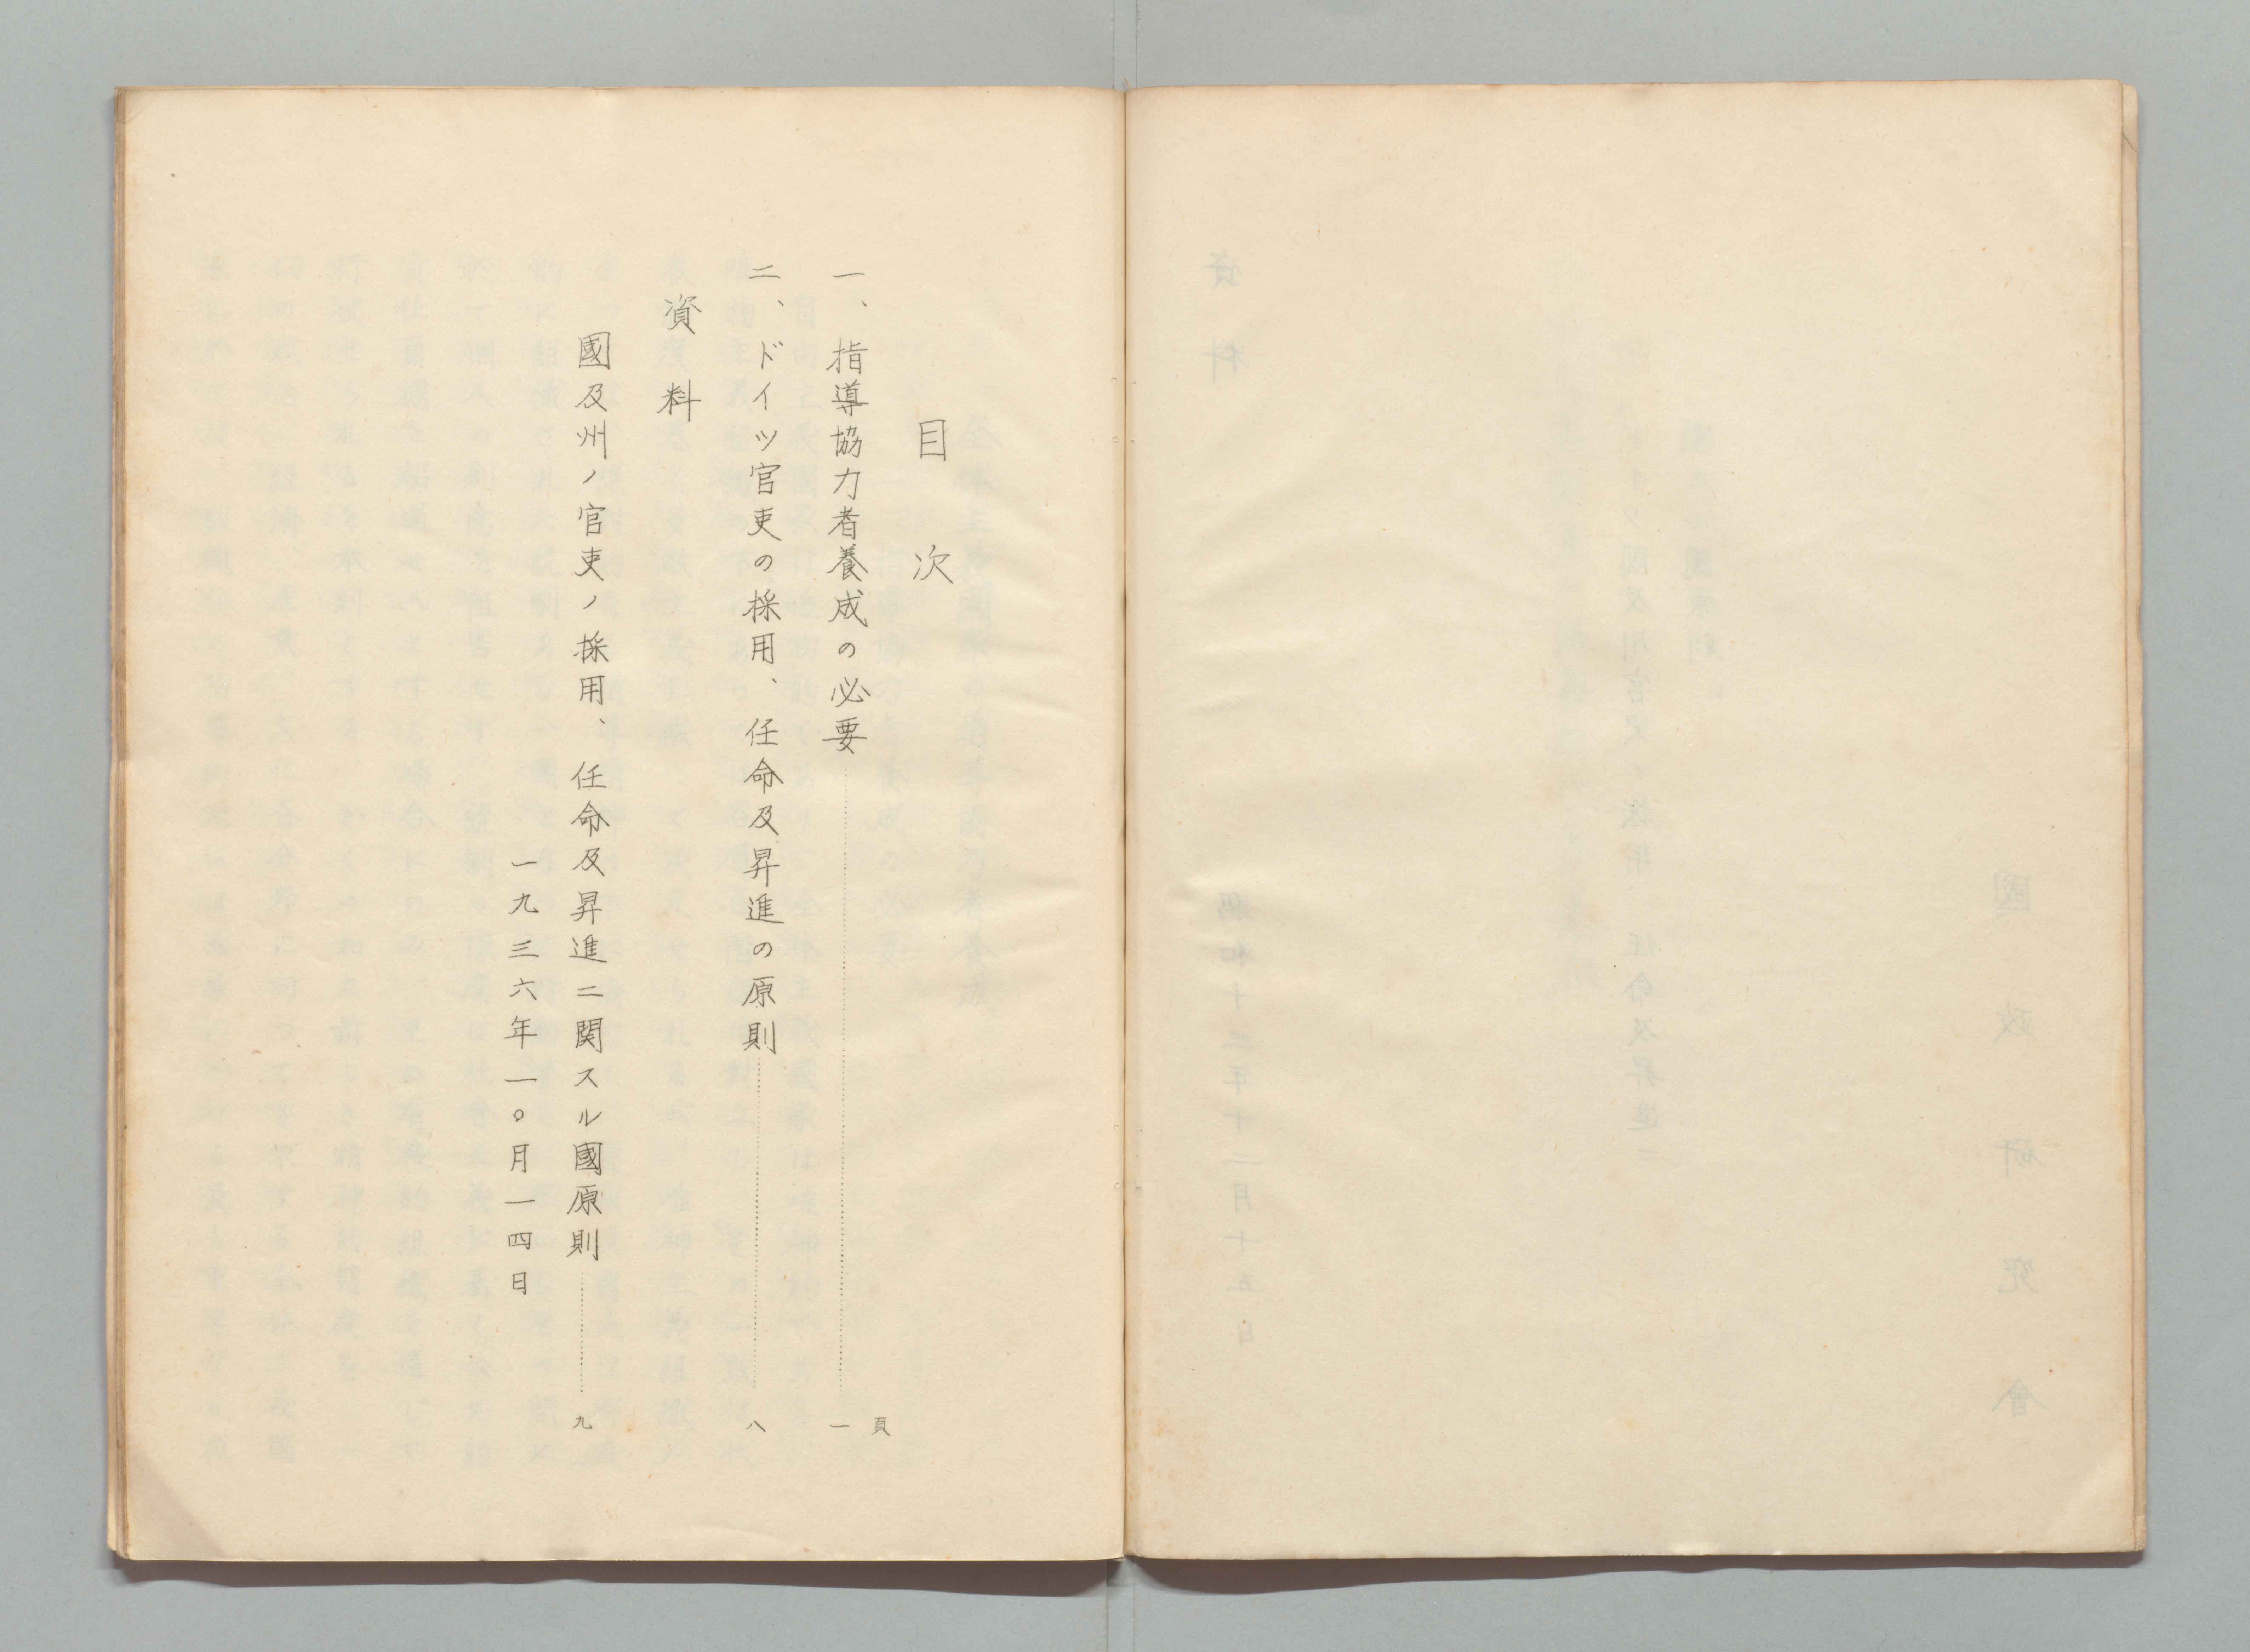 目次
頁
一、指導協力者養成の必要………一
二、ドイツ官吏の採用、任命及昇進の原則………八
資料
國及州ノ官吏ノ採用、任命及昇進ニ関スル國原則………九
一九三六年一〇月一四日